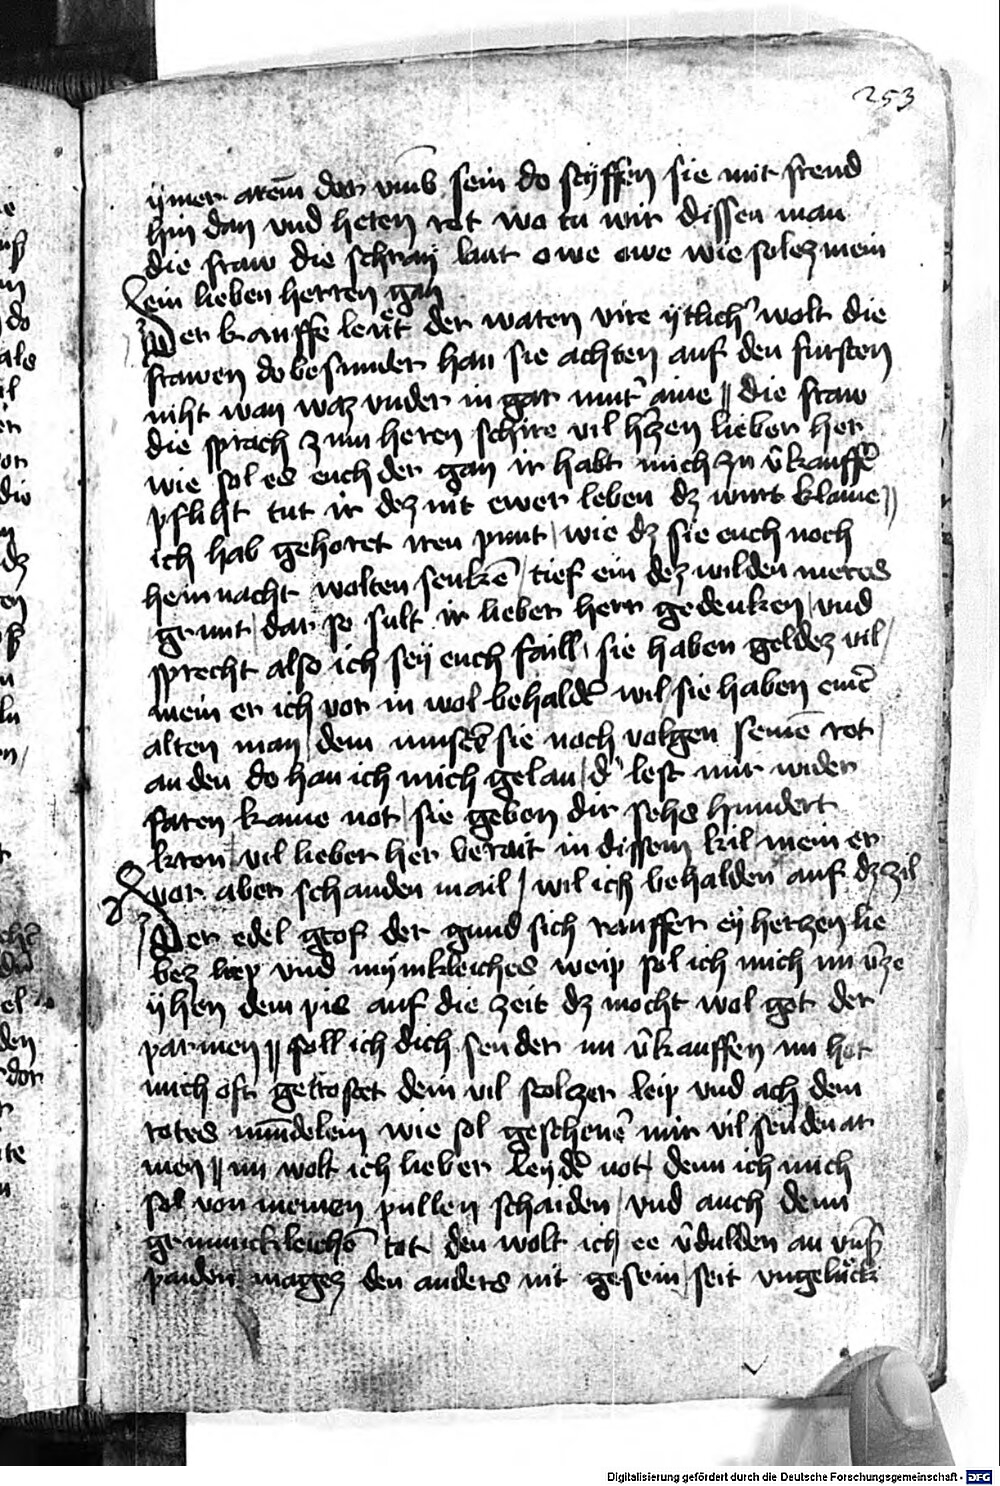 253
ymer arem dar vmb sein do schyffen sie mit frend
hin dan vnd heten rat wa tu wir dissen man
die fraw die schray laut owe owe wie solez mein
lein lieben herren gan
Der kauffe leut der waren vire ytlicher wolt die
frawen do besunder han sie achten auf den fursten
niht wan waz vnder in gar mut aine || die fraw
die sprach zum heren schire vil hertzen lieber her
wie sol es euch der gan ir habt mich zu v̄kauffē
pfliht tut ir dez nit ewer leben dz wirt klaine ||
ich hab gehoret iren punt / wie dz sie euch noch
hein nacht wolten senkē / tief ein dez wilden meres
grunt / dar so sult ir lieber herr gedenken / vnd
sprecht also ich sey euch faill / sie haben geldez vil /
mein er ich vor in wol behaldē wil / sie haben einē
alten man / dem musen sie noch volgen seinē rot /
an den do han ich mich gelan / d' lest mir wider
faren kaine not / sie geben dir sehs hundert
kron / vil lieber her berait in dissem kil / mein er
vor aber schanden mail / wil ich behalden auf dz zil
Der edel grof der gund sich rauffen ey hertzen lie
bez liep vnd mynikleiches weip sol ich mich nu v̄ze
yhen dem pis auf die zeit dz mocht wol got der
parmen || soll ich dich sender nu v̄kauffen nu hat
mich oft getrostet dein vil stolzer leip vnd ach dein
rotes mūndelein wie sol geschehē mir vil senden ar
men || nu wolt ich lieber leydē not / denn ich mich
sol von meinen pullen schaiden / vnd auch denn
grimickleichē tot / den wolt ich ee v̄dulden an vns
paiden magez den anders nit gesein / seit vngelück
Digitalisierung gefördert durch die Deutsche Forschungsgemeinschaft - DFG